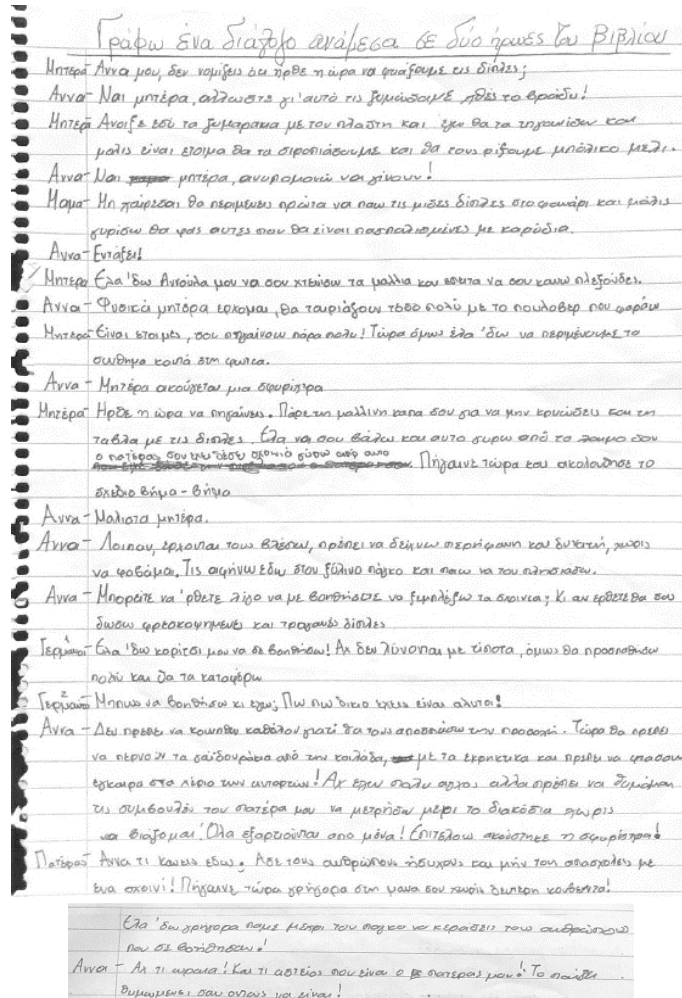 Γράφω ένα διάλογο ανάμεσα σε δύο ήρωες του βιβλίου
Μητέρα - Άννα μου, δεν νομίζεις ότι ήρθε η ώρα να φτιάξουμε τις δίπλες;
Αννα - Ναι μητέρα, αλλωστε γι'αυτό τις ζυμώσαμε χθές το βράδυ!
Μητέρα Ανοιξε εσύ τα ζυμαρακια με τον πλαστη και εγω θα τα τηγανισω και
μολις είναι ετοιμα θα τα σιροπιάσουμε και θα τους ρίξουμε μπόλικο μελι.
Αννα - Ναι μητέρα, ανυπομονώ να γίνουν!
Μαμα - Μη ξαίρεσαι θα περιμενεις πρώτα να παω τις μισες δίπλες στο φαναρι και μόλις
γυρίσω θα φας αυτες που θα είναι πασπαλισμένες με καρύδια.
Αννα - Εντάξει!
Μητέρα Ελα 'δω Αννούλα μου να σου χτενίσω τα μαλλια και επειτα να σου κανω πλεξούδες.
Αννα - Φυσικά μητέρα ερχομαι, θα ταιριάξουν τόσο πολύ με το πουλοβερ που φοράω
Μητερα - Είναι ετοιμες, σου πηγαίνουν πάρα πολυ! Τώρα όμως έλα 'δω να περιμένουμε το
συνθημα κοντά στη φωτια.
Αννα - Μητέρα ακούγεται μια σφυρίχτρα
Μητέρα - Ηρθε η ώρα να πηγαίνεις. Πάρε τη μάλλινη καπα σου για να μην κρυώσεις και τη
ταβλα με τις δίπλες. Ελα να σου βάλω και αυτο γυρω από το
ο πατέρας σου εχει δέσει σχοινιά γύρω από
Πήγαινε τώρα και ακολουθησε το
σχέδιο βήμα - βήμα
Αννα - Μαλιστα μητέρα.
Αννα - Λοιπον, ερχονται τους βλέπω, πρέπει να δείχνω περήφανη και δυνατή, χωρίς
να φοβάμαι. Τις αφήνω εδω στον ξύλινο πάγκο και παω να τους πλησιασω.
Αννα - Μπορείτε να 'ρθετε λίγο να με βοηθήσετε να ξεμπλέξω τα σκοινια; Κι αν ερθετε θα σας
δωσω φρεσκοψημενες και τραγανές δίπλες
Γερμανοί 1 - Ελα 'δω κορίτσι μου να σε βοηθήσω! Αχ δεν λύνονται με τίποτα, όμως θα προσπαθήσω
πολύ και θα τα καταφέρω
Γερμανοί 2 Μηπως να βοηθήσω κι εγω; Πω πω δικιο εχεις είναι αλυτα!
Αννα - Δεν πρεπει να κουνηθω καθόλου γιατί θα τους αποσπάσω την προσοχη. Τώρα θα πρεπει
να περνούν τα γαϊδουράκια από την κοιλάδα, με τα εκρηκτικα και πρεπει να φτασουν
εγκαιρα στα χέρια των ανταρτών! Αχ εχω πολυ αγχος αλλα πρέπει να θυμάμαι
τις συμβουλές του πατέρα μου να μετρήσω μεχρι το διακόσια χωρις
να βιάζομαι. Όλα εξαρτιούνται απο μένα! Επιτέλους ακούστηκε η σφυρίχτρα!
Πατέρας - Αννα τι κανεις εδω; Ασε τους ανθρώπους ήσυχους και μήν τους απασχολεις με
ενα σχοινί! Πήγαινε τώρα γρήγορα στη μανα σου χωρίς δευτερη κουβεντα!
Ελα 'δω γρηγορα παμε μεχρι τον παγκο να κεράσεις τους ανθρώπους
που σε βοήθησαν!
Αννα - Αχ τι ωραια! Και τι αστείος που είναι ο πατερας μου! Το παίζει
θυμωμενος σαν οντως να είναι!